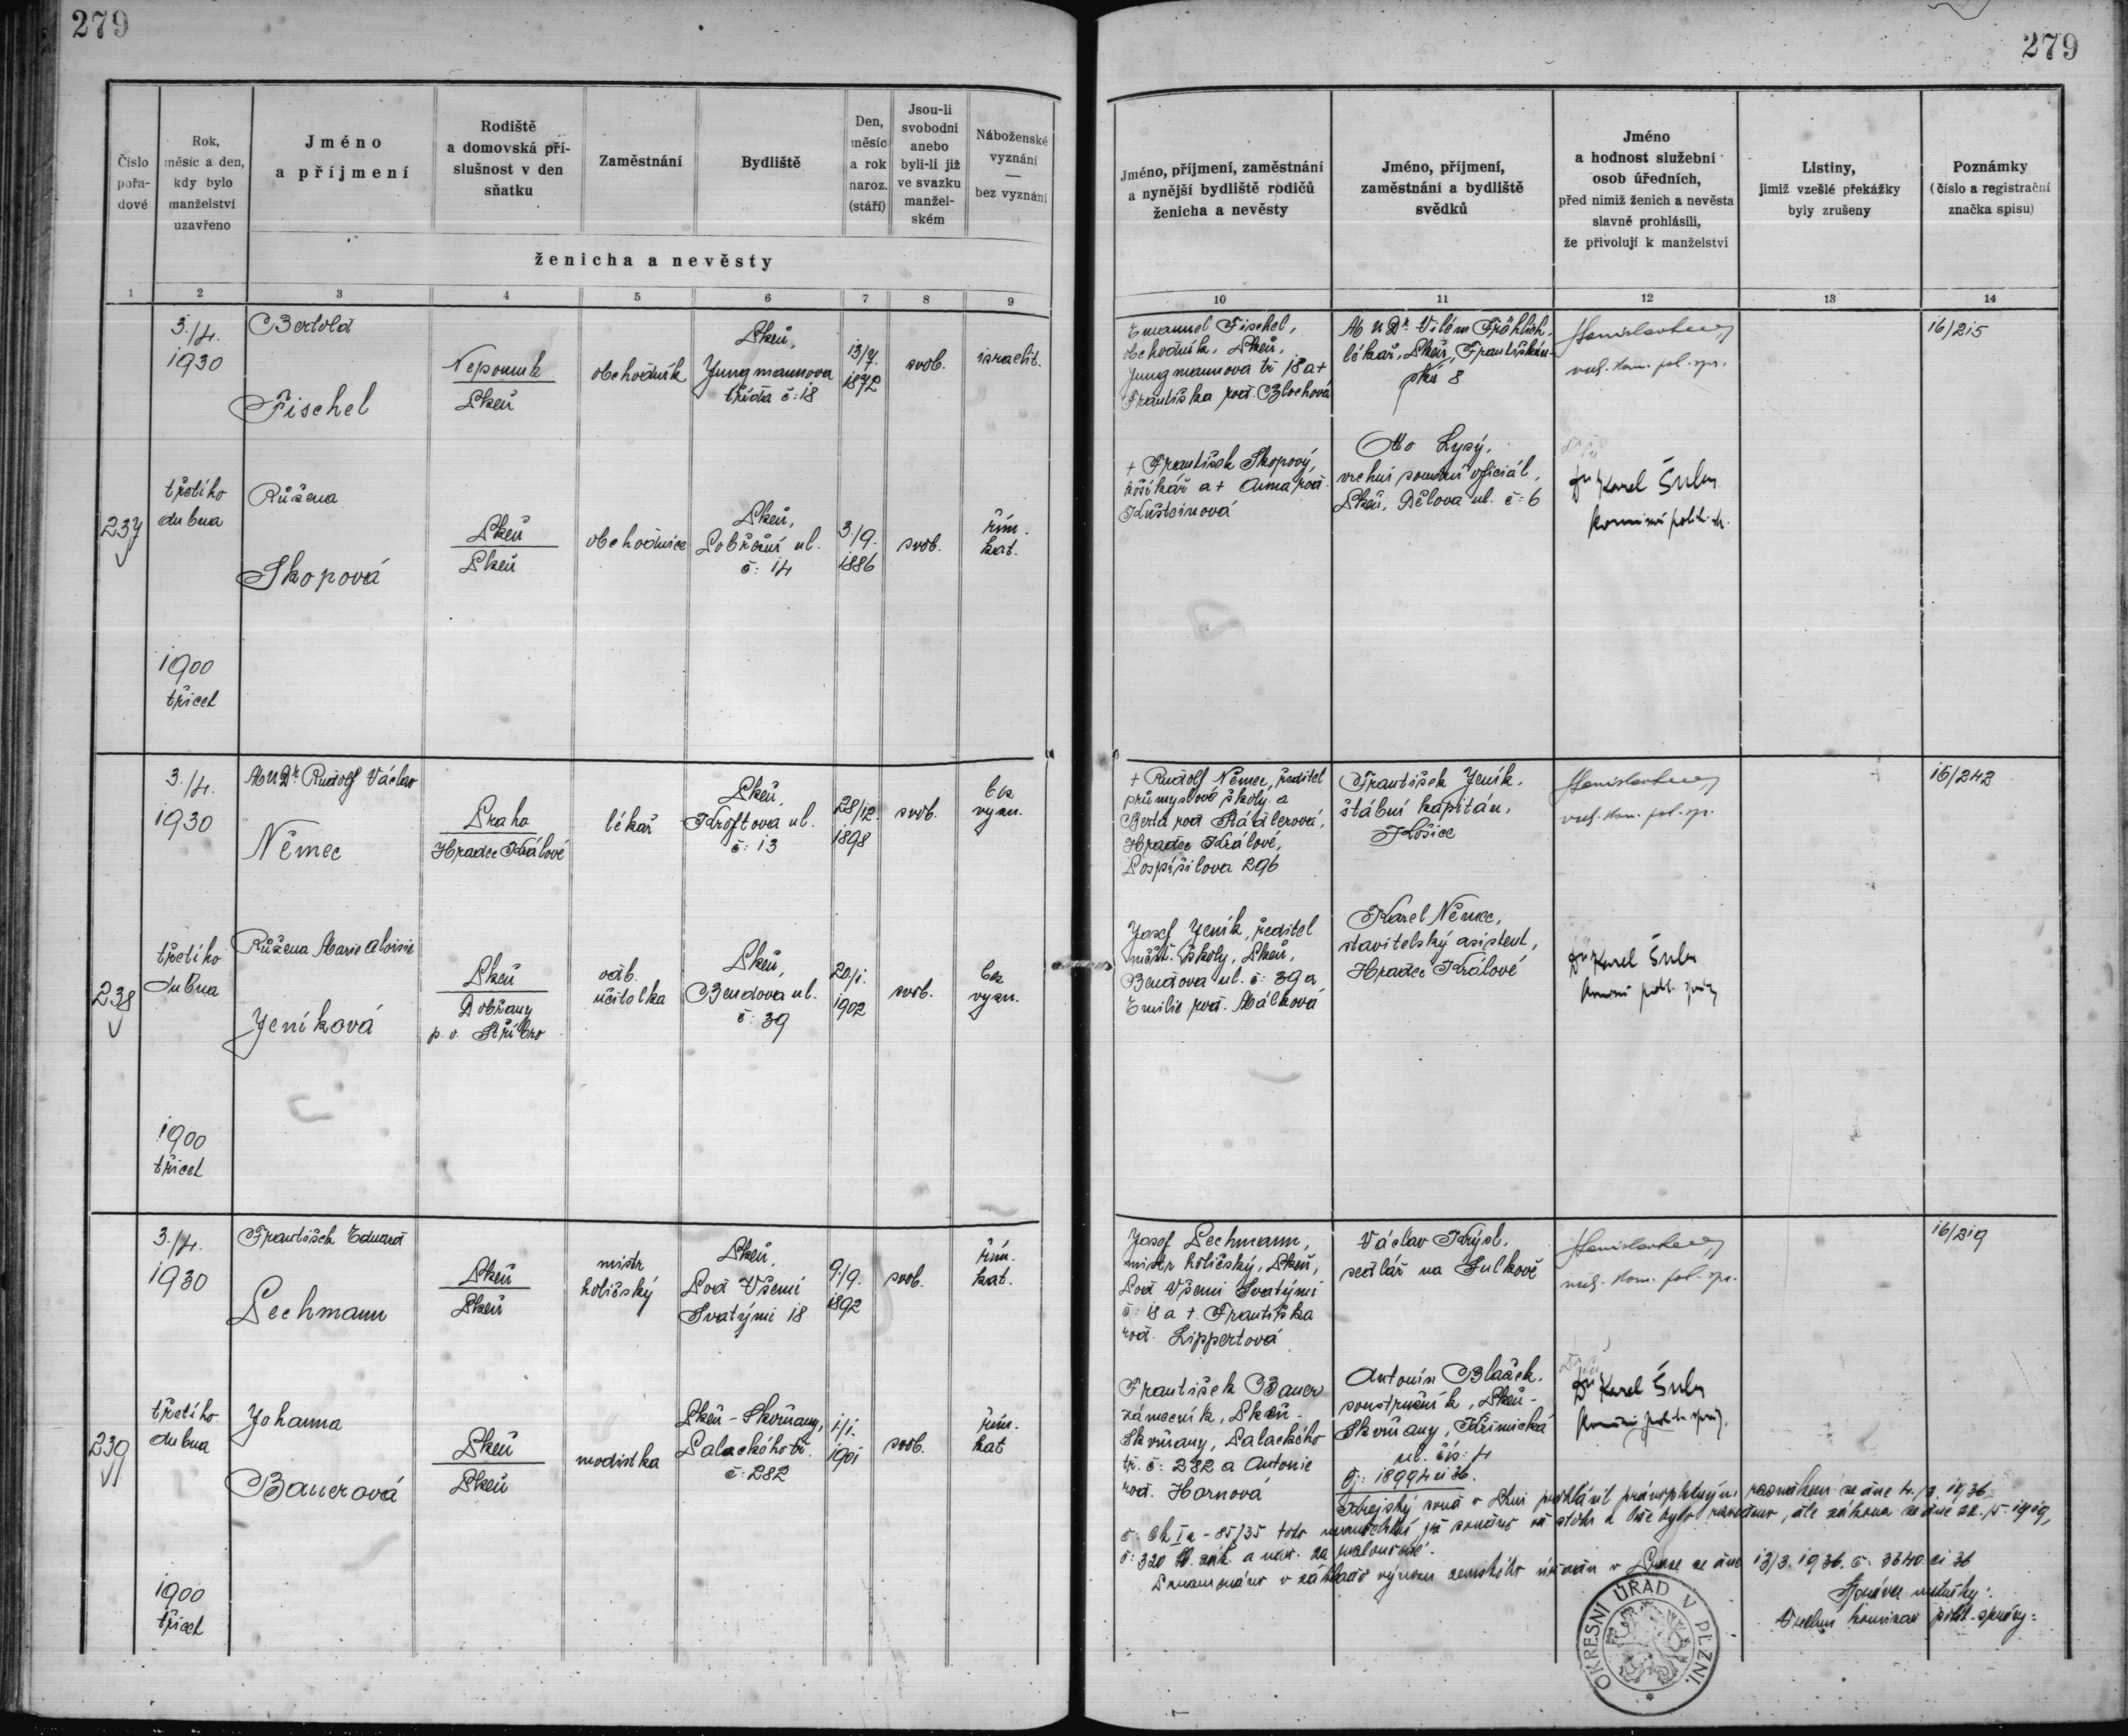 279
279
Číslo
pořa-
dové
Rok,
měsíc a den,
kdy bylo
manželství
uzavřeno
Jméno
a příjmení
Rodiště
a domovská pří-
slušnost v den
sňatku
Zaměstnání
Bydliště
Den,
měsíc
a rok
naroz.
(stáří)
Jsou-li
svobodni
anebo
byli-li již
ve svazku
manžel-
ském
Náboženské
vyznání
—
bez vyznání
ženicha a nevěsty
Jméno, příjmení, zaměstnání
a nynější bydliště rodičů
ženicha a nevěsty
Jméno, příjmení,
zaměstnání a bydliště
svědků
Jméno
a hodnost služební
osob úředních,
před nimiž ženich a nevěsta
slavně prohlásili,
že přivolují k manželství
Listiny,
jimiž vzešlé překážky
byly zrušeny
Poznámky
(číslo a registrační
značka spisu)
1 2 3 4 5 6 7 8 9
10 11 12 13 14
237
3./4.
1930
třetího
dubna
1900
třicet
Bertold
Fischel
Nepomuk
Plzeň
obchodník
Plzeň,
Jungmannova
třída č: 18
13/7.
1872
svob.
israelit.
Růžena
Skopová
Plzeň
Plzeň
obchodnice
Plzeň,
Pobřežní ul.
č: 14
3./9.
1886
svob.
řím.
kat.
Emanuel Fischel,
obchodník, Plzeň,
Jungmannova tř 18 a +
Františka roz. Blochová
+ František Skopový,
košíkář a + Anna roz.
MUDr. Vilém Fröhlich,
lékař, Plzeň, Františkán-
ská 8
Oto Lysý,
vrchní soudní oficiál,
Plzeň, Dělova ul. č: 6
vrch. kom. pol. spr.
Dr Karel Šulc
16/215
238
3./4.
1930
třetího
dubna
1900
třicet
MUDr. Rudolf Václav
Němec
Praha
Hradec Králové
lékař
Plzeň,
Kroftova ul.
č: 13
28/12.
1898
svob.
bez
vyzn.
Růžena Marie Aloisie
Jeníková
Plzeň
Dobřany
p. o. Stříbro
odb.
učitelka
Plzeň,
Bendova ul.
č: 39
20/1.
1902
svob.
bez
vyzn.
+ Rudolf Němec, ředitel
průmyslové školy a
Berta roz Rádlerová,
Hradec Králové,
Pospíšilova 296
Josef Jeník, ředitel
měšť. školy, Plzeň,
Bendova ul. č: 39 a
Emilie roz. Málková
František Jeník,
štábní kapitán,
Košice
Karel Němec,
stavitelský asistent,
Hradec Králové
vrch. kom. pol. spr.
Dr Karel Šulc
16/242
239
3./4.
1930
třetího
dubna
1900
třicet
František Eduard
Pechmann
Plzeň
Plzeň
mistr
holičský
Plzeň,
Pod Všemi
Svatými 18
9./9.
1892
svob.
řím.
kat.
Johanna
Bauerová
Plzeň
Plzeň
modistka
Plzeň - Skvrňany,
Palackého tř.
č: 282
1/1.
1901
svob.
řím.
kat
Josef Pechmann,
mistr holičský, Plzeň,
Pod Všemi Svatými
č: 18 a + Františka
roz. Lippertová
František Bauer
zámečník, Plzeň -
Skvrňany, Palackého
tř. č: 282 a Antonie
roz. Hornová
Václav Krýsl,
sedlář na Sulkově
Antonín Blažek,
soustružník, Plzeň -
Skvrňany, Křimická
ul. čís: 4
vrch. kom. pol. spr.
Dr Karel Šulc
16/219
Čj: 18994 ai 36.
Krajský soud v Plzni prohlásil právoplatným rozsudkem ze dne 4./2. 1936
č: Ck Ia - 85/35 toto manželství, jež
č: 320 Sb. zák. a nař. za
v základě výnosu zemského úřadu v Praze ze dne 13/3. 1936. č: 3340 ai 36
Správce matriky:
Vrchní komisar polit. správy:
OKRESNÍ ÚŘAD V PLZNI.